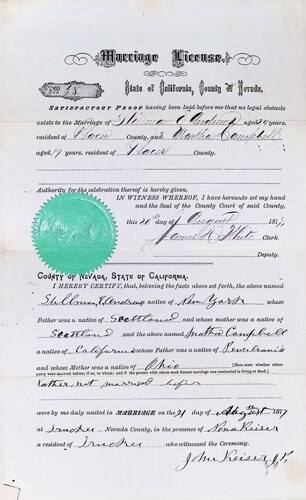 Marriage License.
No. 58 State of California, County of Nevada.
SATISFACTORY PROOF having been laid before me that no legal obstacle
exists to the Marriage of Stilman C Andrews aged 24 years,
resident of Placer County, and Martha Campbell
aged 19 years, resident of Placer County.
Authority for the celebration thereof is hereby given.
IN WITNESS WHEREOF, I have hereunto set my hand
and the Seal of the County Court of said County,
this 20th day of August 187
Clerk
Deputy.
COUNTY OF NEVADA, STATE OF CALIFORNIA.
I HEREBY CERTIFY, that, believing the facts above set forth, the above named
Andrews a native of New York
whose Father was a native of Scottland and whose mother was a native of
Scottland and the above named Martha Campbell
a native of California whose Father was a native of
and whose Mother was a native of Ohio
not married before
were by me duly united in MARRIAGE on the 21 day of August 1877
at Truckee Nevada County, in the presence of Keiser
a resident of Truckee who witnessed the Ceremony.
John Keiser J.P.